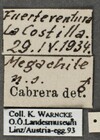 Fuerteventura
La Costilla.
29.IV.1934.
Megachile
n.s. ♀
Cabrera det.
Coll. K. WARNCKE
O.Ö.Landesmuseum
Linz/Austria-egg.93